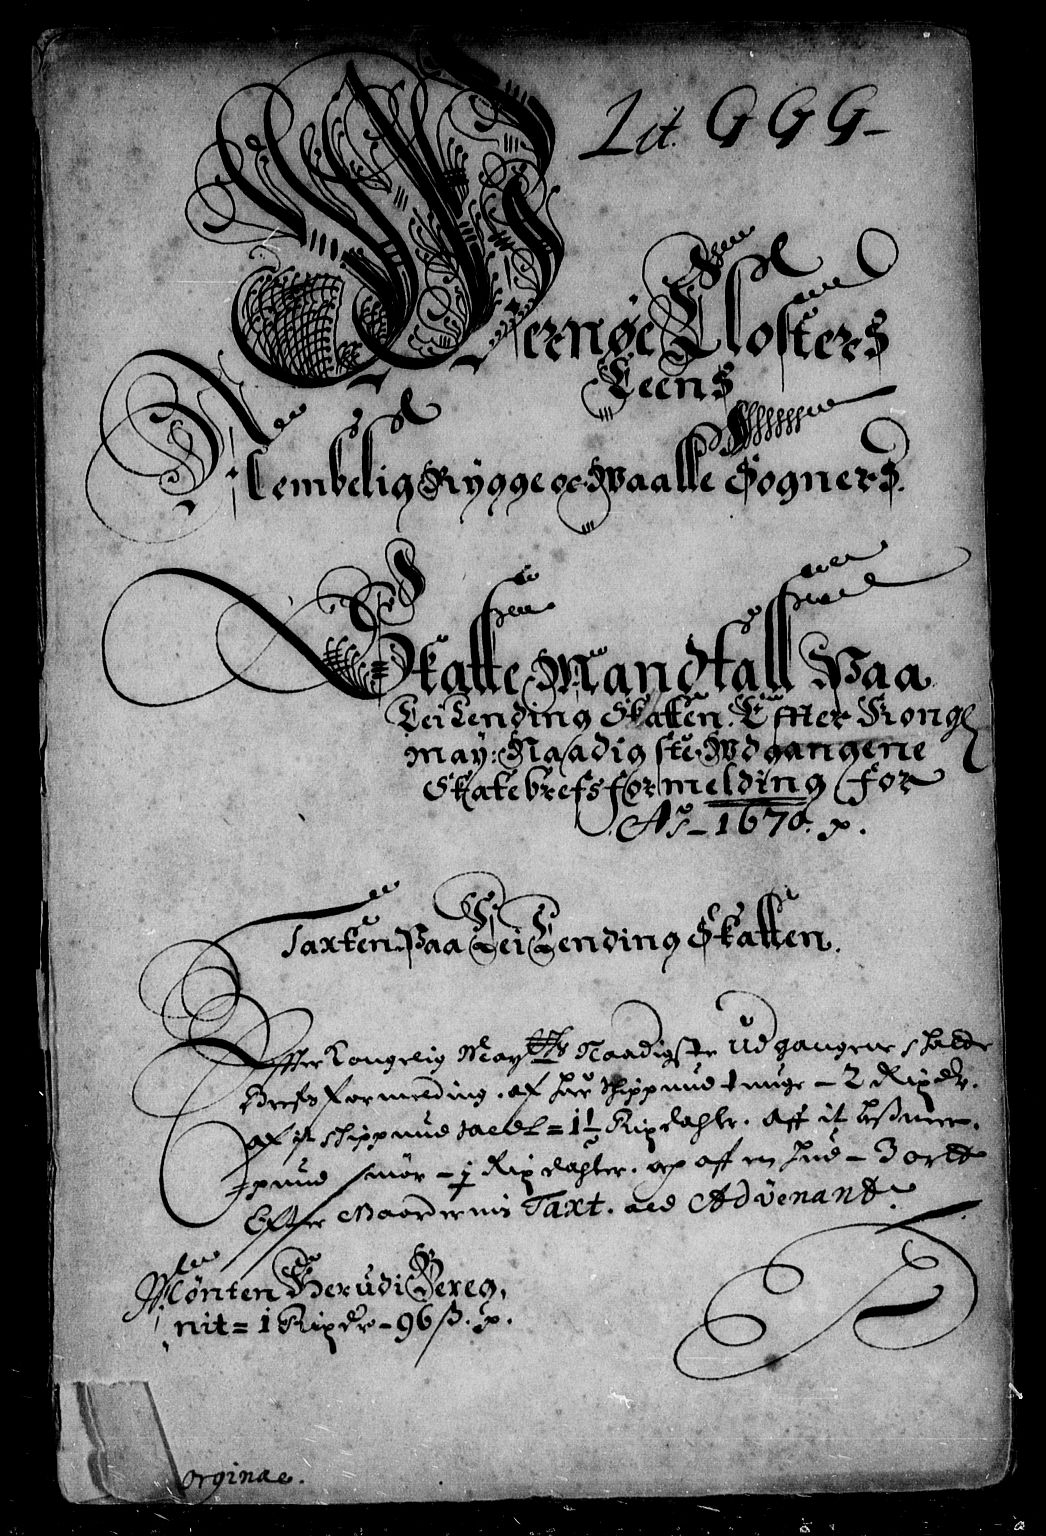 Lit. G G G
Wernøe Closters
Leens
Nemblig Rygge oc Waalle Sogners.
Skatte Mandtall Paa
Leilending Skatten. Effter Kongl
may: Naadigste Wdgangene
Skatebrefs formelding for
Ao_ 1670. p.
Taxten Paa Leilending Skatten.
Effter Kongelig Mayts Naadigste Udgangene skatte
Brefs formelding. af hver Skippund tunge - 2 Rixdr.
af it skippund = 1½ Rixdahlr. Aff it bismer.
pund smör - ½ Rixdahler. og aff en hud - 3 ortt
Effter Advenant.
Mönten Herudi Bereg,
nit = 1 Rixdr - 96 ß. p.
orginae.